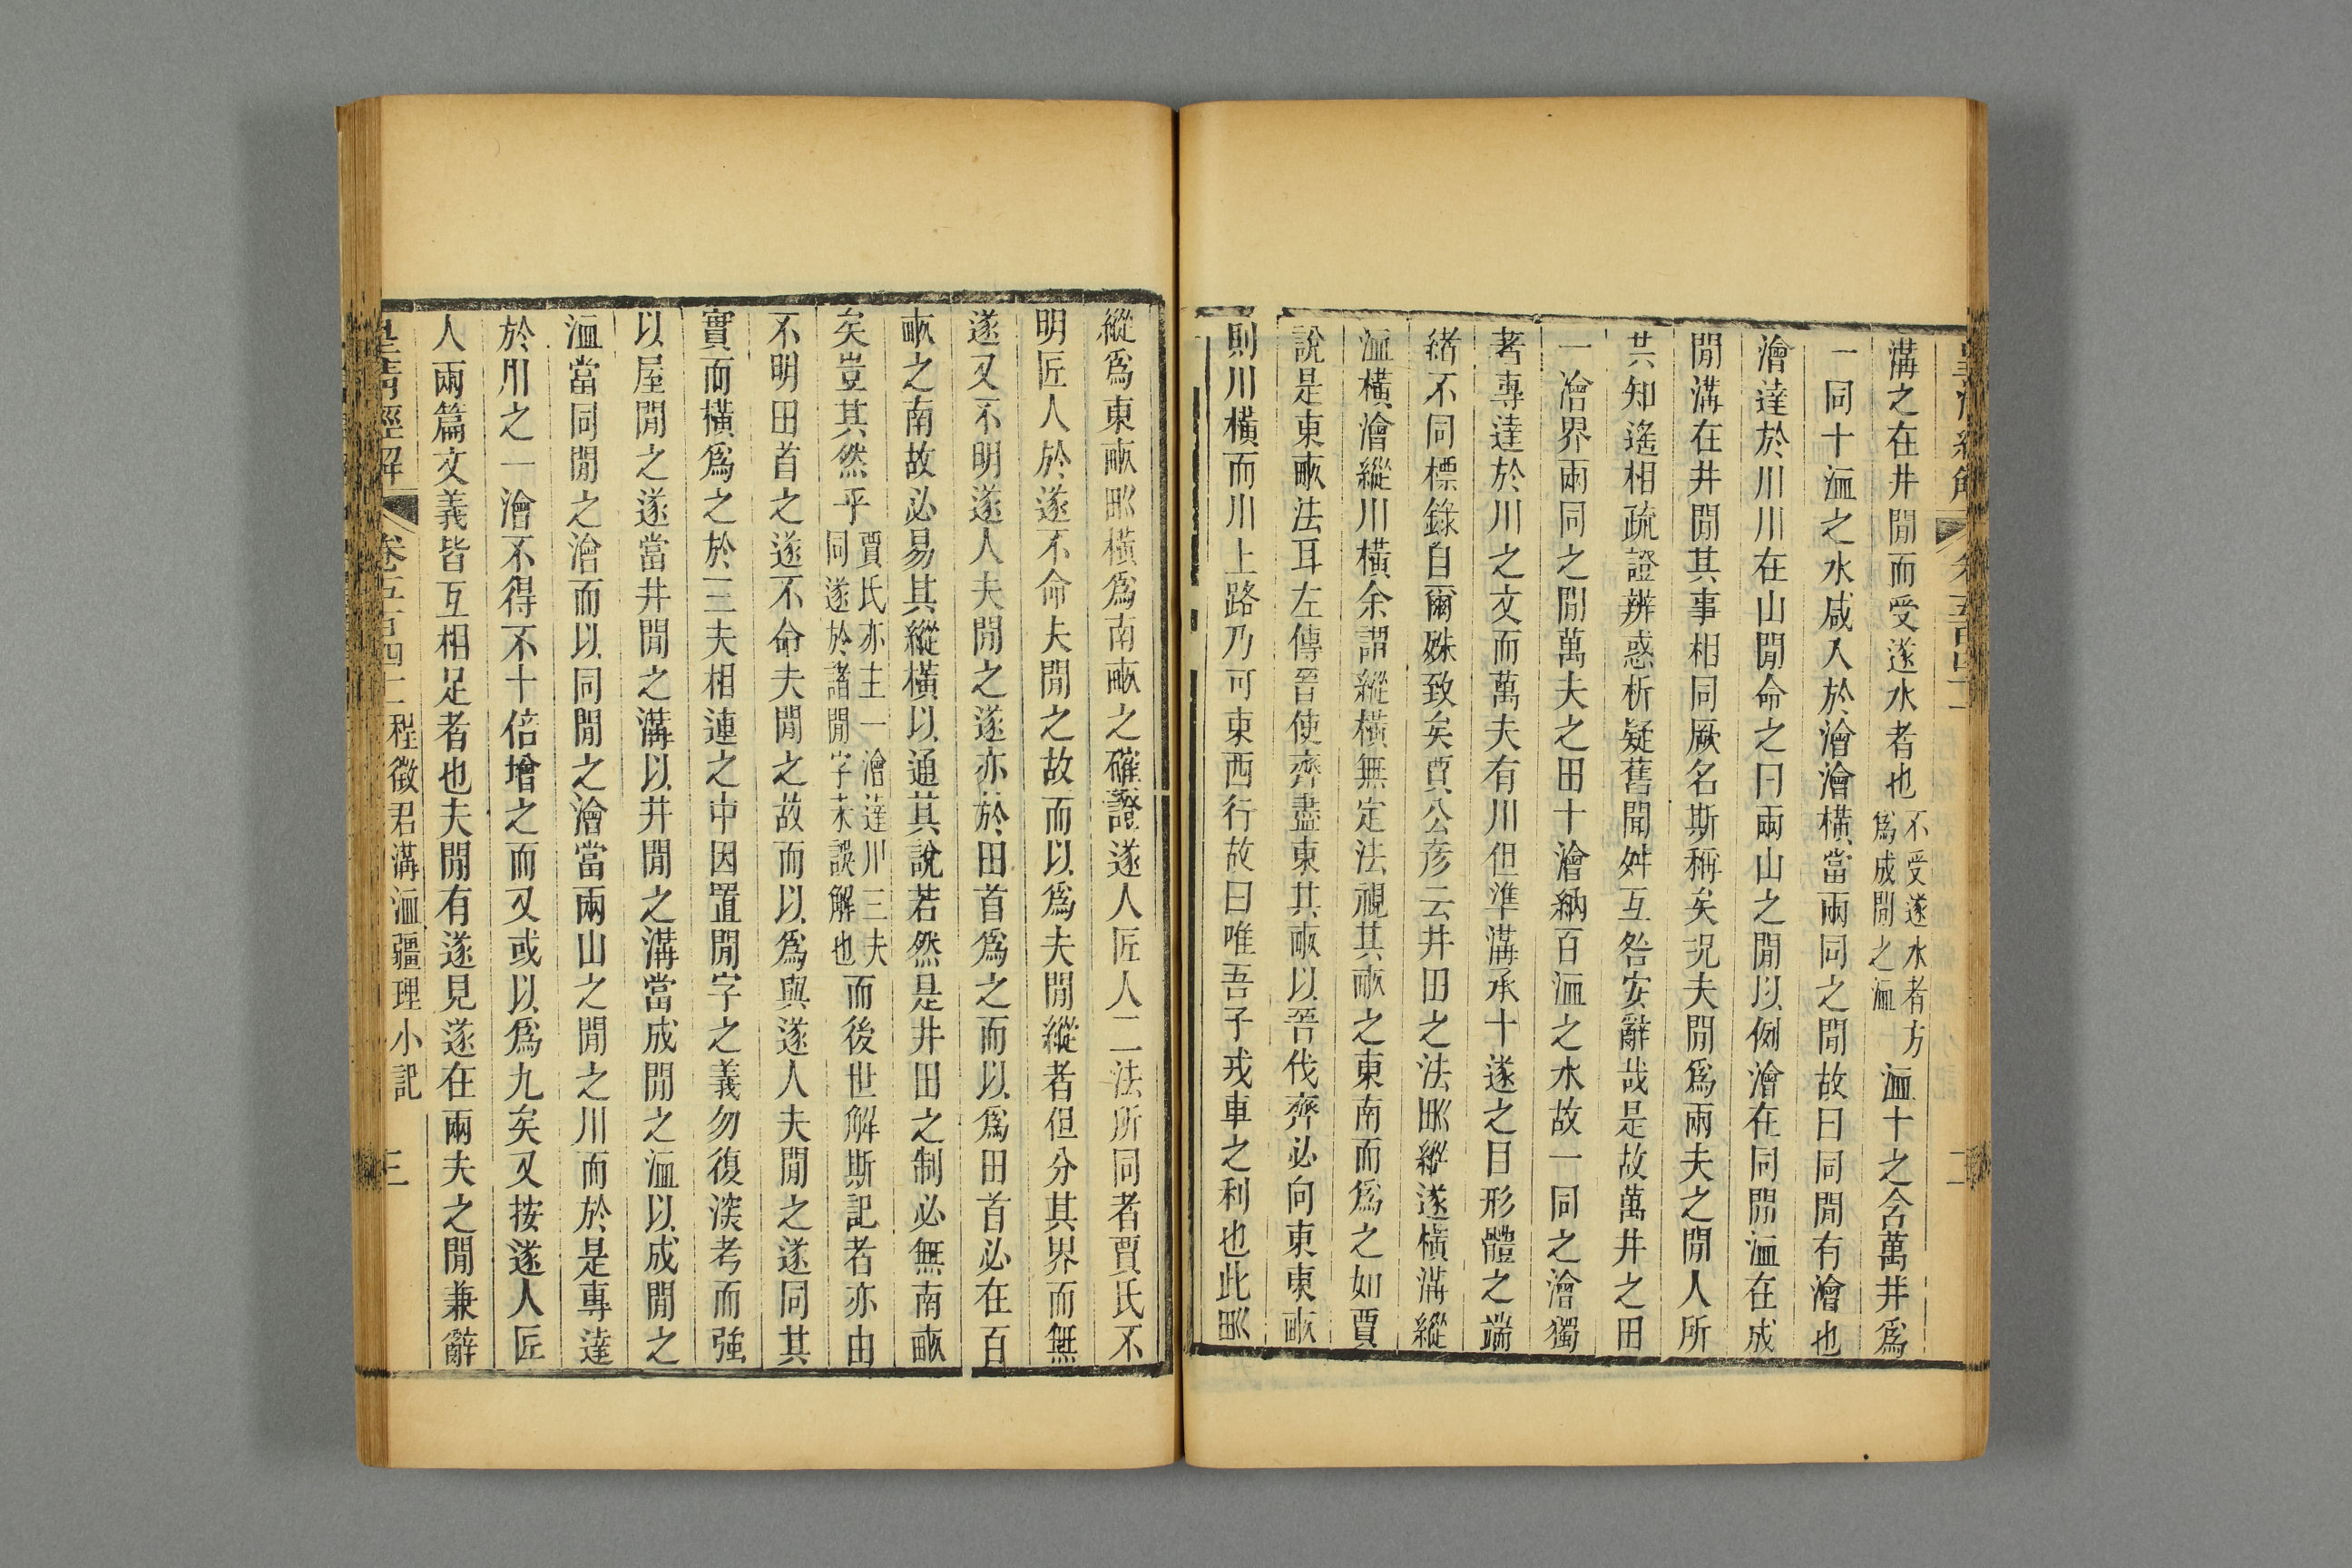 溝之在井閒而受遂水者也不受遂水者方爲成閒之洫洫十之含萬井爲
一同十洫之水咸入於澮澮橫當兩同之閒故曰同閒有澮也
澮達於川川在山閒命之曰兩山之閒以例澮在同閒洫在成
閒溝在井閒其事相同厥名斯稱矣況夫閒爲兩夫之閒人所
共知遙相疏證辨惑析疑舊聞舛互咎安辭哉是故萬井之田
一澮界兩同之閒萬夫之田十澮納百洫之水故一同之澮獨
著專達於川之文而萬夫有川但準溝承十遂之目形體之端
緒不同標錄自爾殊致矣賈公彥云井田之法甽縱遂橫溝縱
洫橫澮縱川橫余謂縱橫無定法視其畞之東南而爲之如賈
說是東畞法耳左傳晉使齊盡東其畞以晉伐齊必向東東畞
則川橫而川上路乃可東西行故曰唯吾子戎車之利也此甽
縱爲東畞甽橫爲南畞之確證遂人匠人二法所同者賈氏不
明匠人於遂不命夫閒之故而以爲夫閒縱者但分其界而無
遂又不明遂人夫閒之遂亦於田首爲之而以爲田首必在百
畞之南故必易其縱橫以通其說若然是井田之制必無南畞
矣豈其然乎賈氏亦主一澮達川三夫同遂於諸閒字未誤解也而後世解斯記者亦由
不明田首之遂不命夫閒之故而以爲與遂人夫閒之遂同其
實而橫爲之於三夫相連之中因置閒字之義勿復深考而強
以屋閒之遂當井閒之溝以井閒之溝當成閒之洫以成閒之
洫當同閒之澮而以同閒之澮當兩山之閒之川而於是專達
於川之一澮不得不十倍增之而又或以爲九矣又按遂人匠
人兩篇文義皆互相足者也夫閒有遂見遂在兩夫之閒兼辭
皇清經解 卷五百四十二 程徵君溝洫疆理小記 三